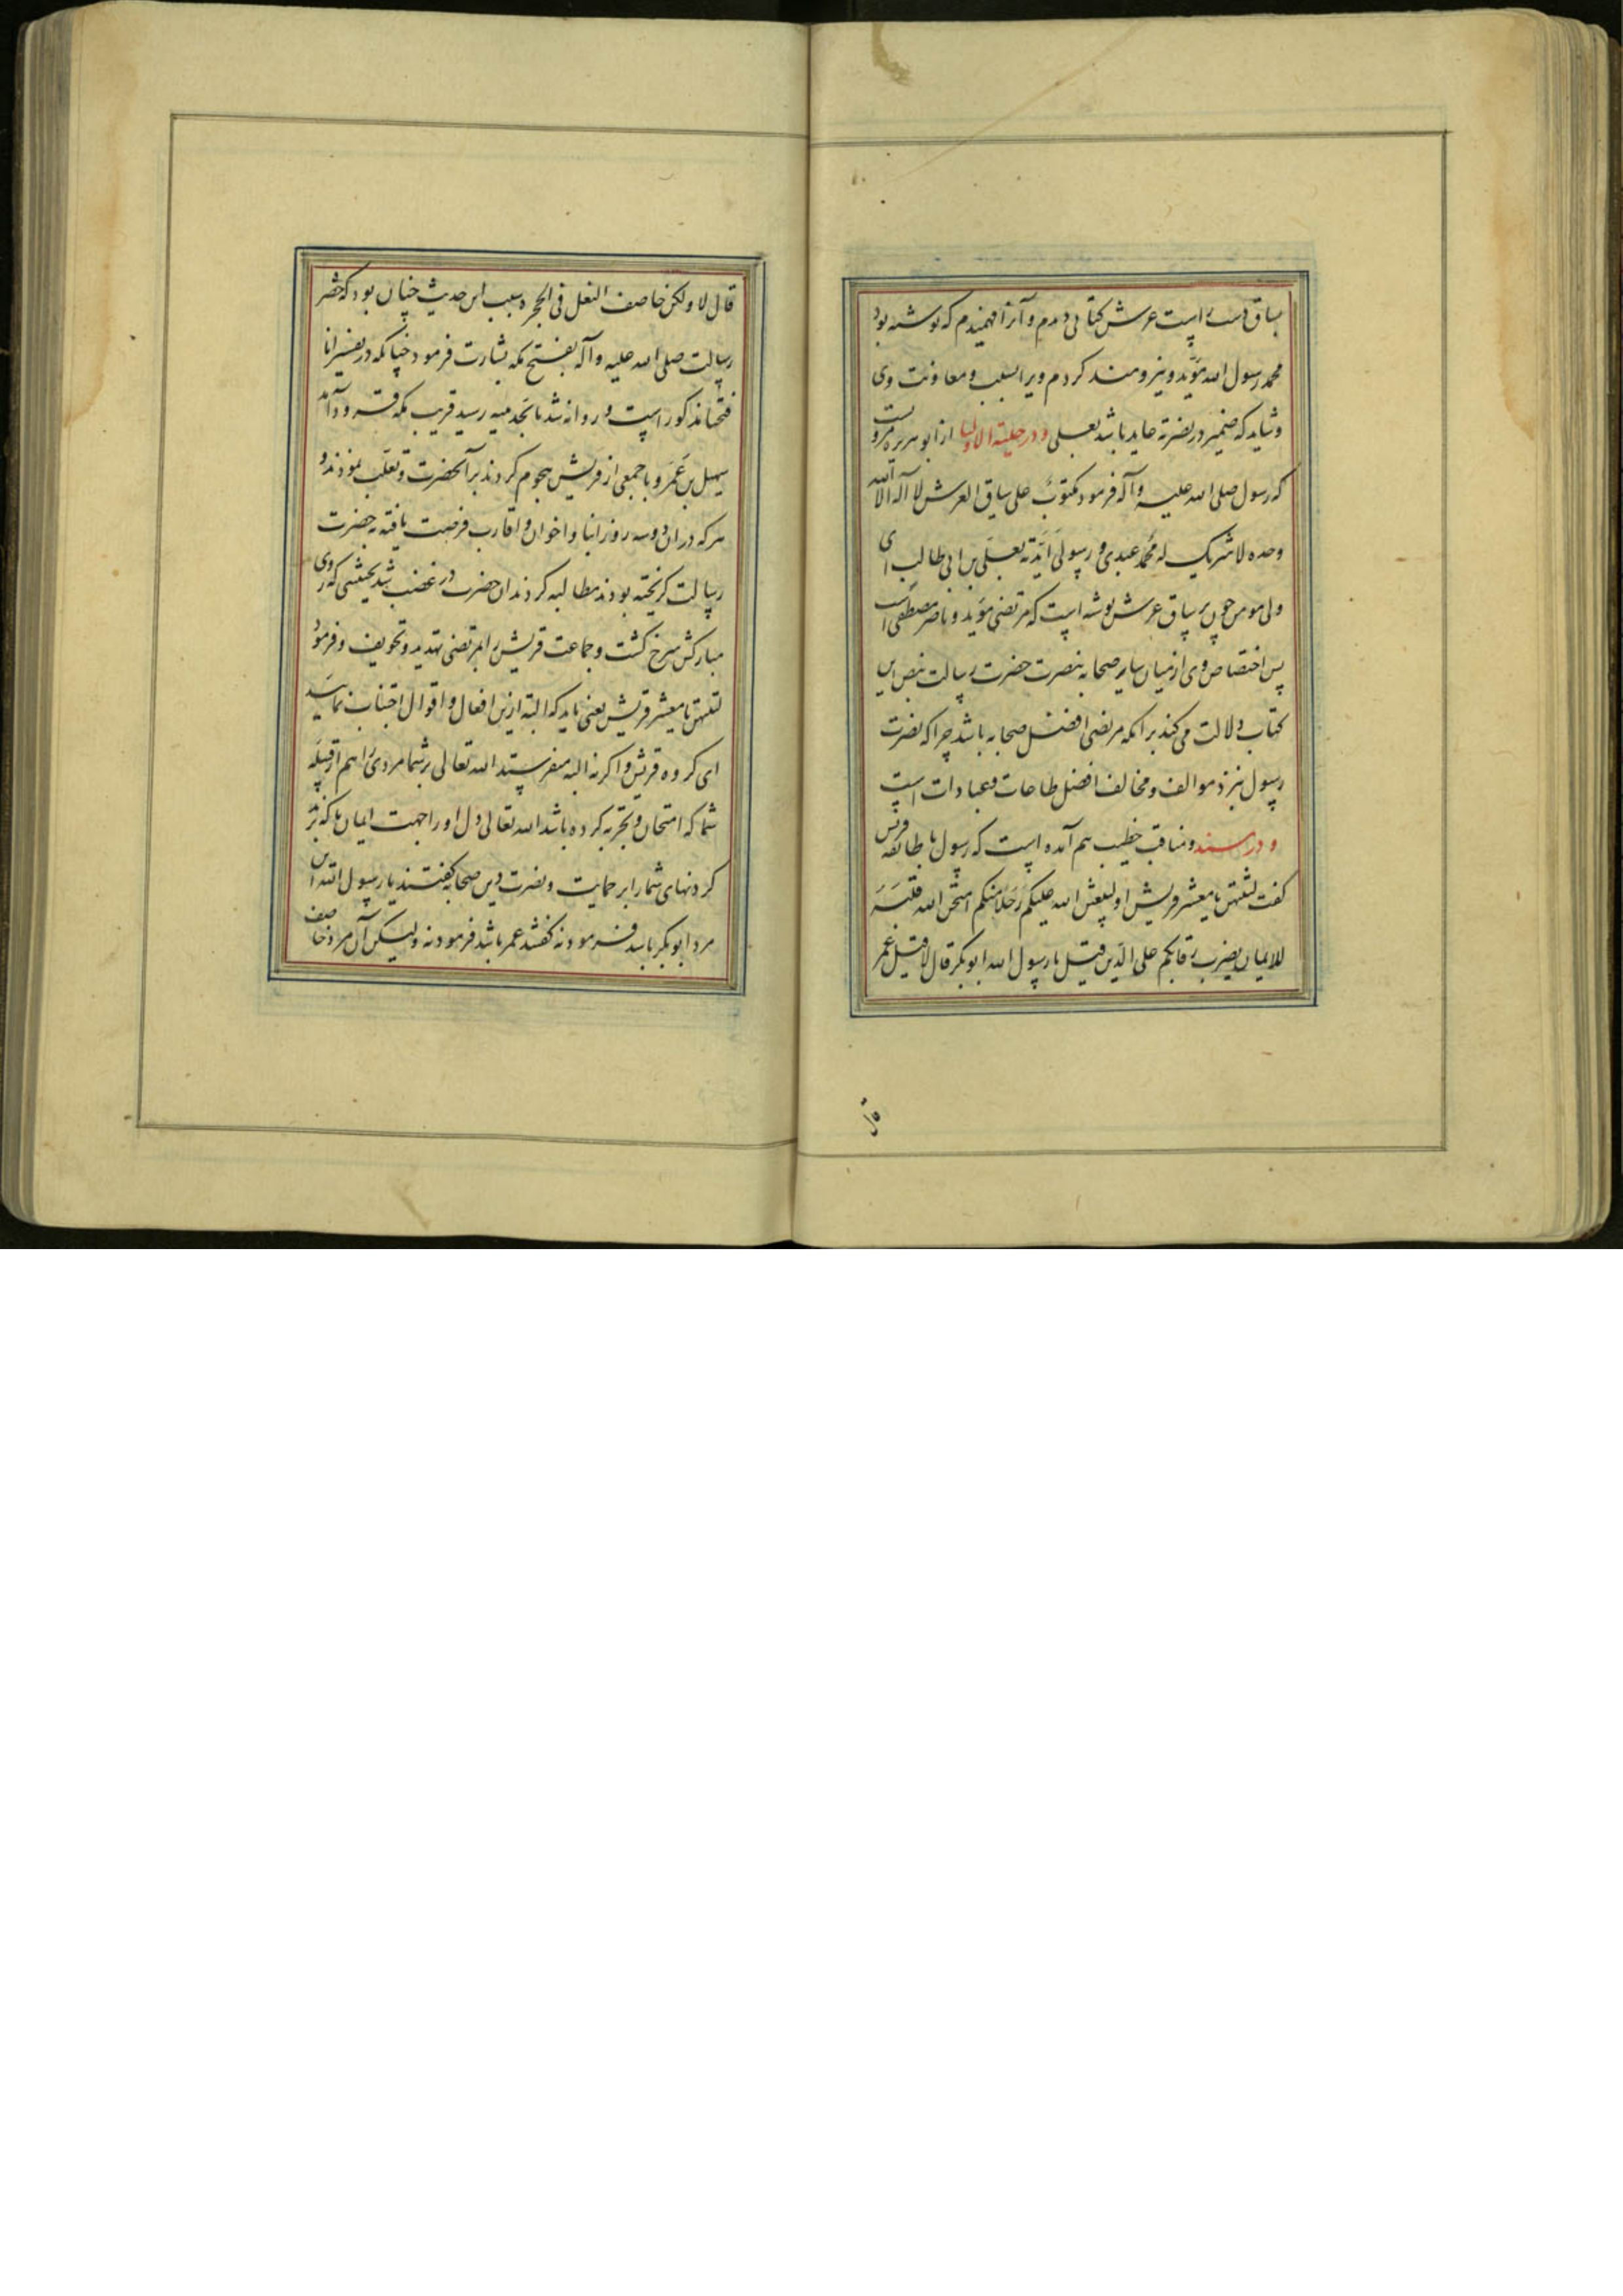 بساق دست راست عرش کتابی دیدم و آنرا فهمیدم که نوشته بود
محمد رسول الله مؤید و نیرومند کردم ویرا بسبب و معاونت وی
و شاید که ضمیر در نصرته عاید باشد بعلی و در حلیة الاولیا از ابو هریره مرویست
که رسول صلی الله علیه و آله فرمود مکتوبٌ علی ساق العرش لا اله الا الله
وحده لا شریک له محمد عبدی و رسولی ایّدته بعلی بن ابی طالب ای
ولی مومن چون بر ساق عرش نوشته است که مرتضی مؤید و ناصر مصطفی است
پس اختصاص وی از میان سایر صحابه بنصرت حضرت رسالت بنص این
کتاب دلالت می کند برانکه مرتضی افضل صحابه باشد چرا که نصرت
رسول بنزد موالف و مخالف افضل طاعات و عبادات است
و در مسند و مناقب خطیب هم آمده است که رسول با طائفه قریش
گفت لتنتهن یا معشر قریش او لیبعثن الله علیکم رجلا منکم امتحن الله قلبه
للایمان یضرب رقابکم علی الدین قیل یا رسول الله ابو بکر قال لا قیل عمر
قال
قال لا ولکن خاصف النعل فی الحجره سبب این حدیث چنان بود که حضر
رسالت صلی الله علیه و آله بفتح مکه بشارت فرمود چنانکه در تفسیر انا
فتحنا مذکور است و روانه شد تا بحدیبیه رسید قریب مکه فرود آمد
سهیل بن عمرو با جمعی از قریش هجوم کردند بر آنحضرت و تغلب نمودند و
هرکه دران دو سه روز از ابنا و اخوان و اقارب فرصت یافته بحضرت
رسالت گریخته بودند مطالبه کردند ان حضرت در غضب شد بحیثیتی که روی
مبارکش سرخ گشت و جماعت قریش را بمرتضی تهدید و تخویف و فرمود
لتنتهن یا معشر قریش یعنی باید که البته ازین افعال و اقوال اجتناب نمایید
ای گروه قریش و اگر نه البته میفرستد الله تعالی بر شما مردی را هم از قبیله
شما که امتحان و تجربه کرده باشد الله تعالی دل او را جهت ایمان تا که بزند
گردنهای شما را بر حمایت و نصرت دین صحابه گفتند یا رسول الله این
مرد ابو بکر باشد فرمود نه گفتند عمر باشد فرمود نه ولیکن آن مرد خاصف